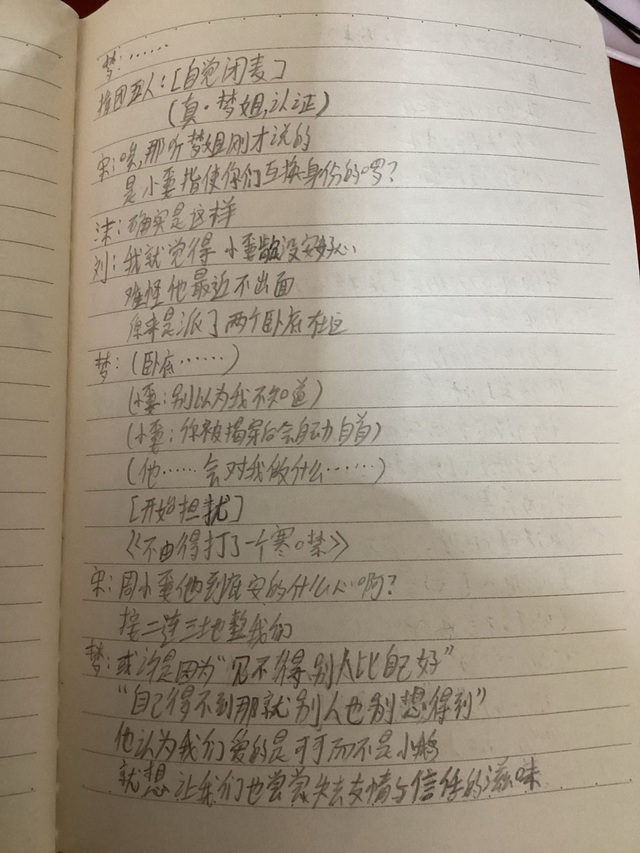 梦:……
推团五人:[自觉闭麦]
(真·梦姐认证)
宋:唉,那听梦姐刚才说的
是小垔指使你们互换身份的啰?
沫:确实是这样
刘:我就觉得小垔没安好心
难怪他最近不出面
原来是派了两个卧底在这
梦:(卧底……)
(小垔:别以为我不知道)
(小垔:你被揭穿后会自动自首)
(他……会对我做什么……)
[开始担扰]
《不由得打了一个寒噤》
宋:周小垔他到底安的什么心啊?
接二连三地整我们
梦:或许是因为“见不得别人比自己好”
“自己得不到那就别人也别想得到”
他认为我们爱的是可可而不是小
就想让我们也尝尝失去友情与信任的滋味